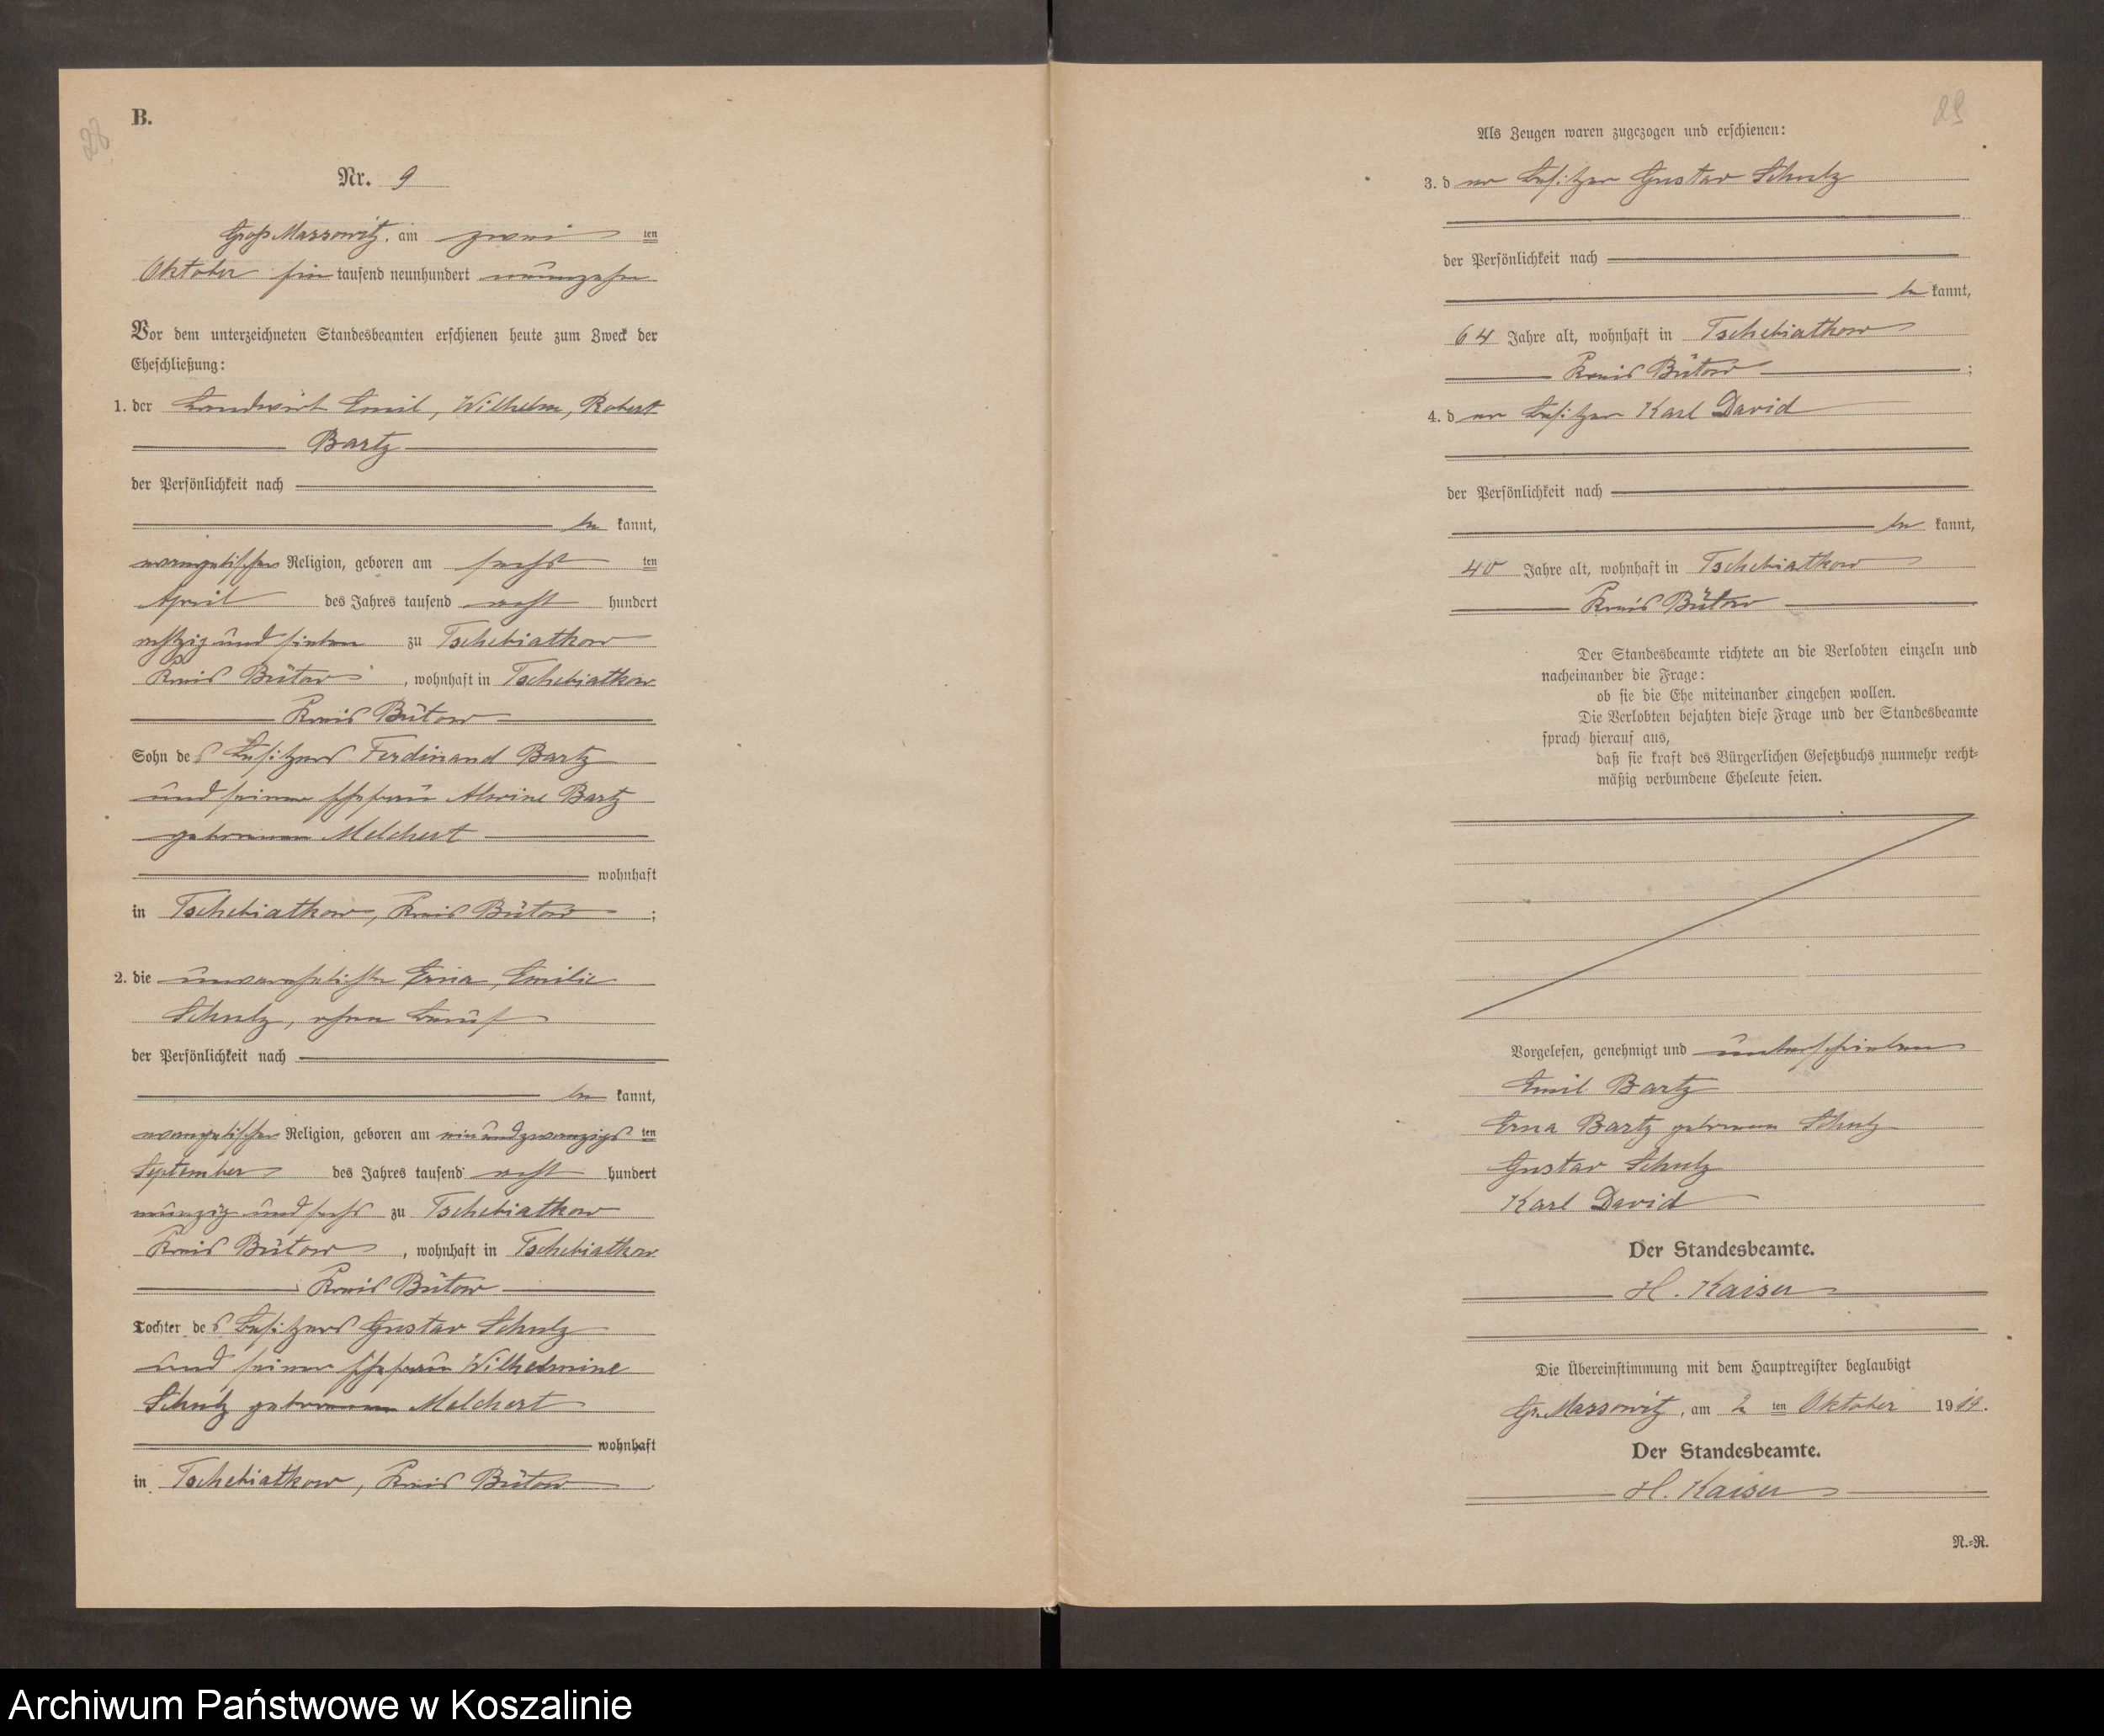 28
B.
Nr. 9
Groß Massowitz, am zwei ten
Oktober ein tausend neunhundert neunzehn
Vor dem unterzeichneten Standesbeamten erschienen heute zum Zweck der
Eheschließung:
1. der Landwirt Emil, Wilhelm, Robert
Bartz
der Persönlichkeit nach
be kannt,
evangelischer Religion, geboren am sechs ten
April des Jahres tausend acht hundert
achtzig und sieben zu Tschebiatkow
Kreis Bütow, wohnhaft in Tschebiatkow
Kreis Bütow
Sohn des Besitzers Ferdinand Bartz
und seiner Ehefrau Alwine Bartz
geborenen Melchert
wohnhaft
in Tschebiatkow, Kreis Bütow;
2. die unverehelichte Erna, Emilie
Schulz, ohne Beruf
der Persönlichkeit nach
be kannt,
evangelischer Religion, geboren am einundzwanzigs ten
September des Jahres tausend acht hundert
neunzig und sechs zu Tschebiatkow
Kreis Bütow, wohnhaft in Tschebiatkow
Kreis Bütow
Tochter des Besitzers Gustav Schulz
und seiner Ehefrau Wilhelmine
Schulz geborenen Melchert
wohnhaft
in Tschebiatkow, Kreis Bütow
29
Als Zeugen waren zugezogen und erschienen:
3. der Besitzer Gustav Schulz
der Persönlichkeit nach
be kannt,
64 Jahre alt, wohnhaft in Tschebiatkow
Kreis Bütow;
4. der Besitzer Karl David
der Persönlichkeit nach
be kannt,
40 Jahre alt, wohnhaft in Tschebiatkow
Kreis Bütow
Der Standesbeamte richtete an die Verlobten einzeln und
nacheinander die Frage:
ob sie die Ehe miteinander eingehen wollen.
Die Verlobten bejahten diese Frage und der Standesbeamte
sprach hierauf aus,
daß sie kraft des Bürgerlichen Gesetzbuchs nunmehr recht-
mäßig verbundene Eheleute seien.
Vorgelesen, genehmigt und unterschrieben
Emil Bartz
Erna Bartz geborenen Schulz
Gustav Schulz
Karl David
Der Standesbeamte.
H. Kaiser
Die Übereinstimmung mit dem Hauptregister beglaubigt
Gr. Massowitz, am 2 ten Oktober 1919.
Der Standesbeamte.
H. Kaiser
N.-R.
Archiwum Państwowe w Koszalinie